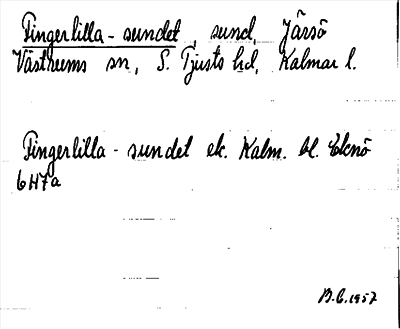 Fingerlilla-sundet, sund, Järsö
Västrums sn, S. Tjusts hd, Kalmar l.
Fingerlilla-sundet ek. Kalm. bl. Eknö
6H7a
B.C. 1957